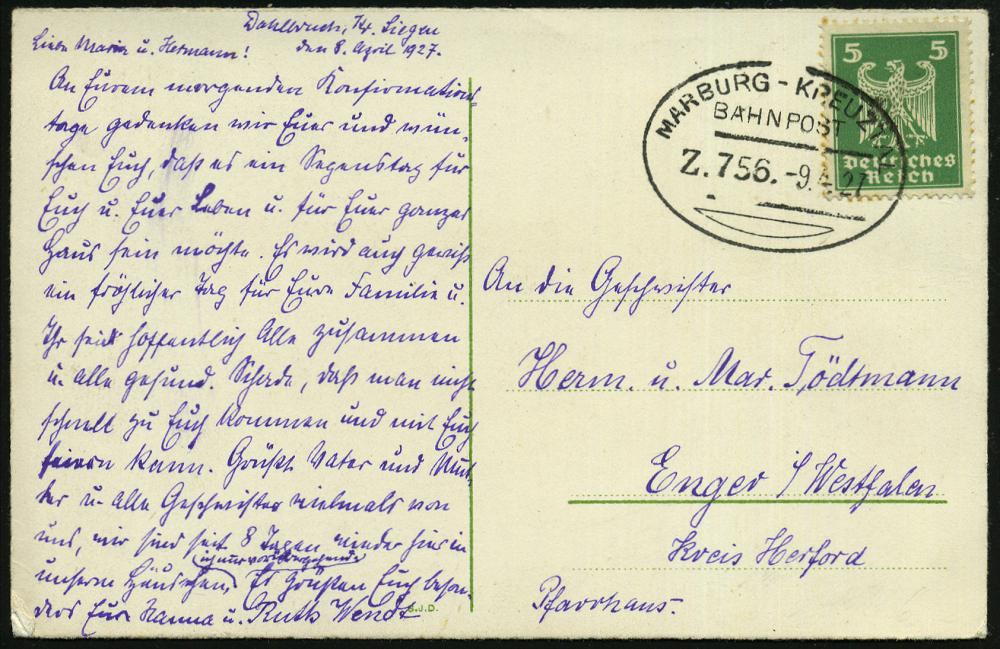 Dahlbruch, Kr. Siegen
den 8. April 1927.
Liebe Maria u. Hermann!
An Eurem morgenden Konfirmations-
tage gedenken wir Euer und wün-
schen Euch, daß es ein Segenstag für
Euch u. Euer Leben u. für Euer ganzes
Haus sein möchte. Es wird auch gewiß
ein fröhlicher Tag für Eure Familie u.
Ihr seid hoffentlich Alle zusammen
u. alle gesund. Schade, daß man nicht
schnell zu Euch kommen und mit Euch
feiern kann. Grüßt Vater und Mut-
ter u. alle Geschwister vielmals von
uns, wir sind seit 8 Tagen wieder hier in
(ich nur vorübergehend)
unserm Häuschen. Es grüßen Euch beson-
ders Eure Hanna u. Ruth Wendt
S.J.D.
5 5
Deutsches
Reich
MARBURG - KREUZTAL
BAHNPOST
Z.756. -9.4.27
An die Geschwister
Herm. u. Mar. Tödtmann
Enger i/Westfalen
Kreis Herford
Pfarrhaus.